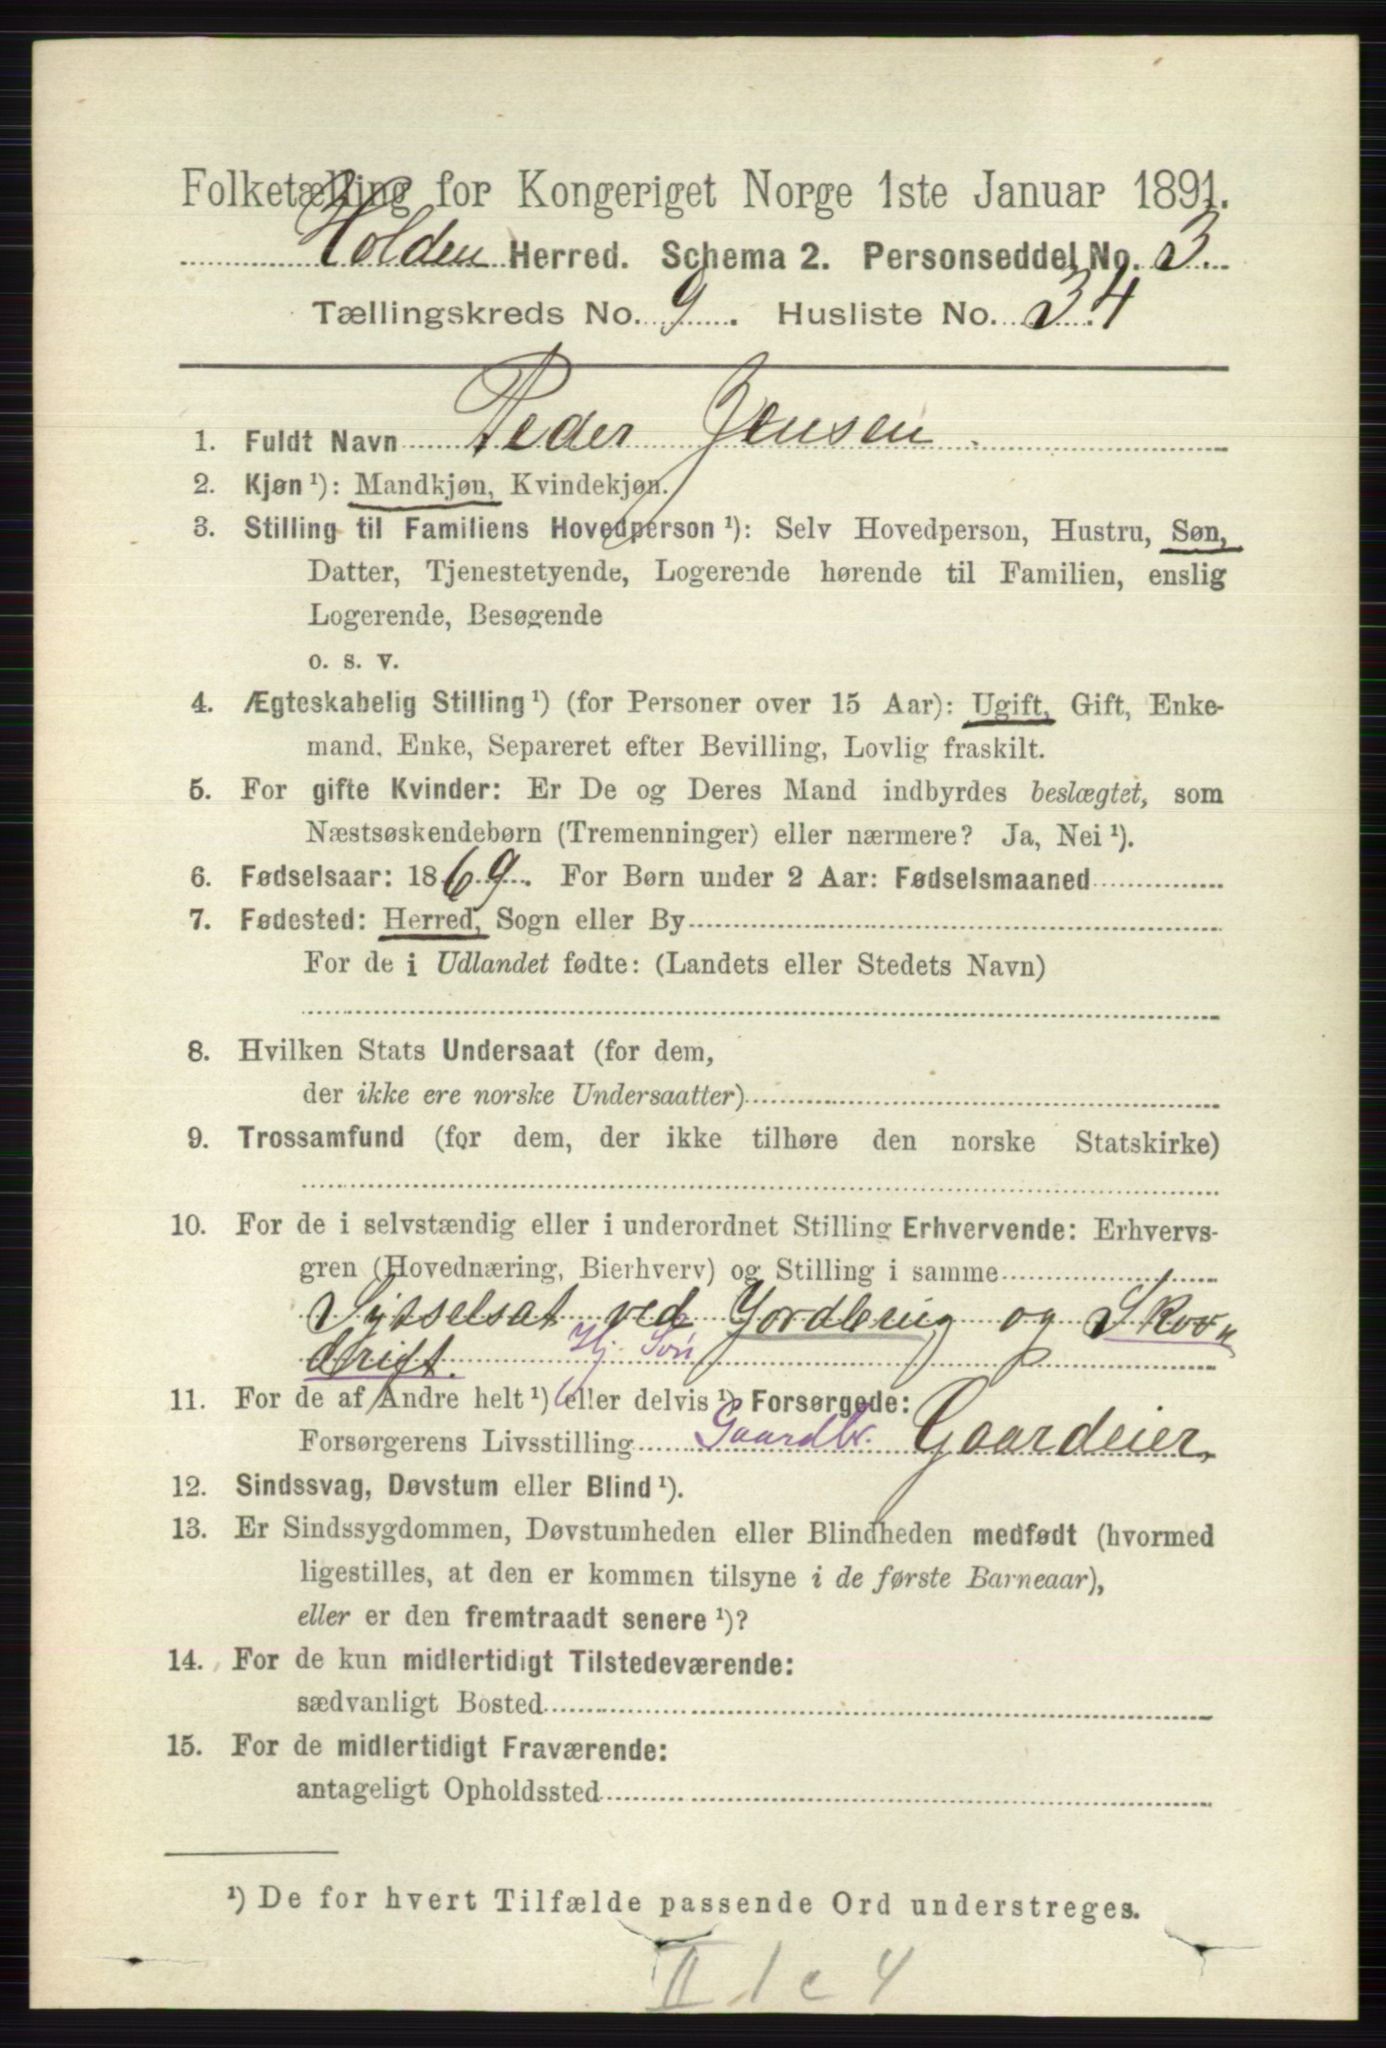 Folketælling for Kongeriget Norge 1ste Januar 1891.
Holden Herred. Schema 2. Personseddel No. 3.
Tællingskreds No. 9. Husliste No. 34
1. Fuldt Navn Peder Jensen.
2. Kjøn ¹): Mandkjøn, Kvindekjøn.
3. Stilling til Familiens Hovedperson ¹): Selv Hovedperson, Hustru, Søn,
Datter, Tjenestetyende, Logerende hørende til Familien, enslig
Logerende, Besøgende
o. s. v.
4. Ægteskabelig Stilling ¹) (for Personer over 15 Aar): Ugift, Gift, Enke-
mand, Enke, Separeret efter Bevilling, Lovlig fraskilt.
5. For gifte Kvinder: Er De og Deres Mand indbyrdes beslægtet, som
Næstsøskendebørn (Tremenninger) eller nærmere? Ja, Nei ¹).
6. Fødselsaar: 1869. For Børn under 2 Aar: Fødselsmaaned
7. Fødested: Herred, Sogn eller By
For de i Udlandet fødte: (Landets eller Stedets Navn)
8. Hvilken Stats Undersaat (for dem,
der ikke ere norske Undersaatter)
9. Trossamfund (for dem, der ikke tilhøre den norske Statskirke)
10. For de i selvstændig eller i underordnet Stilling Erhvervende: Erhvervs-
gren (Hovednæring, Bierhverv) og Stilling i samme
Sysselsat ved Jordbrug og Skov„
drift. Hj. Søn
11. For de af Andre helt ¹) eller delvis ¹) Forsørgede:
Forsørgerens Livsstilling Gaardbr. Gaardeier,
12. Sindssvag, Døvstum eller Blind ¹).
13. Er Sindssygdommen, Døvstumheden eller Blindheden medfødt (hvormed
ligestilles, at den er kommen tilsyne i de første Barneaar),
eller er den fremtraadt senere ¹)?
14. For de kun midlertidigt Tilstedeværende:
sædvanligt Bosted
15. For de midlertidigt Fraværende:
antageligt Opholdssted
¹) De for hvert Tilfælde passende Ord understreges.
II 1 c 4